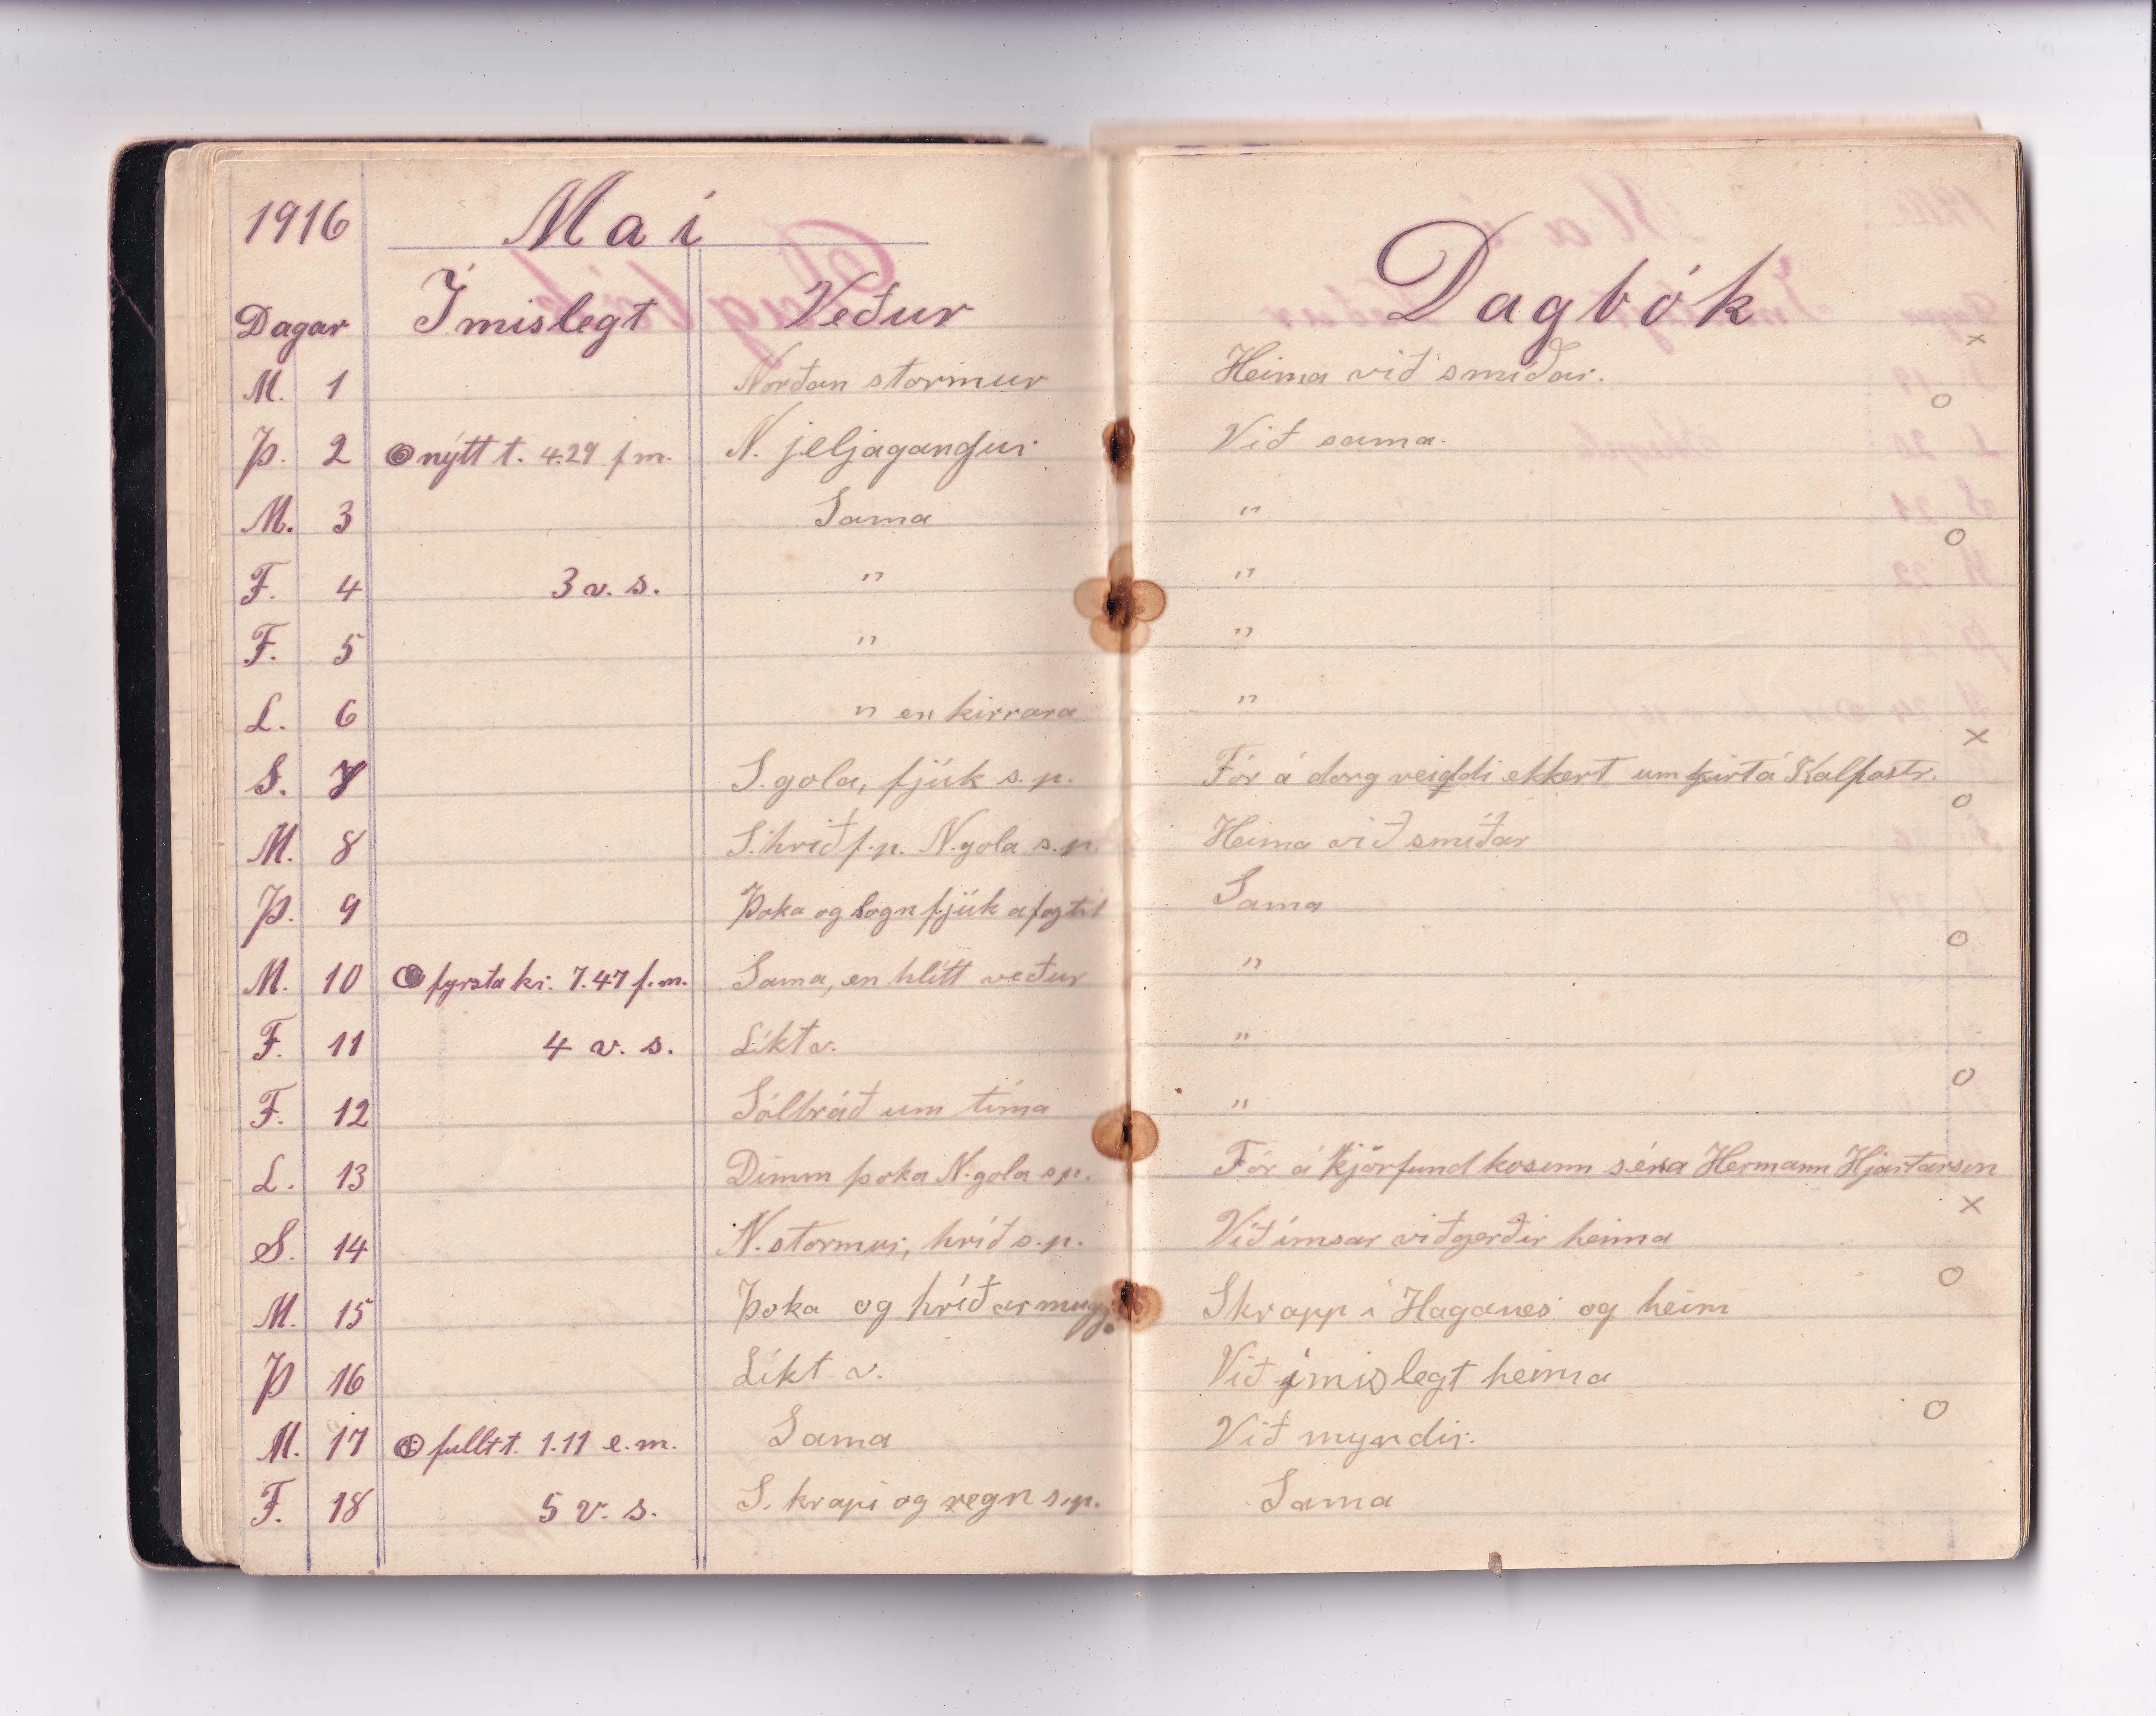 1916 Maí
Dagar Ímislegt Veður Dagbók
M. 1 Norðan stormur Heima við smíðar. x
Þ. 2 nýtt t. 4.29 f.m. N. jeljagangur Við sama. o
M. 3 Sama "
F. 4 3 v. s. " " o
F. 5 " "
L. 6 " en kirrara "
S. 7 S. gola, fjúk s.p. Fór á dorg veiddi ekkert um kirt á Kalfastr. x
M. 8 S. hríð f.p. N. gola s.p. Heima við smíðar o
Þ. 9 Þoka og logn fjúk af og til Sama
M. 10 fyrsta kv. 7.47 f.m. Sama, en hlítt veður " o
F. 11 4 v. s. Líkt v. "
F. 12 Sólbráð um tíma " o
L. 13 Dimm þoka N. gola s.p. Fór á kjörfund kosinn séra Hermann Hjartarson
S. 14 N. stormur, hríð s.p. Við ímsar viðgerðir heima x
M. 15 Þoka og hríðarmugg. Skrapp í Haganes og heim o
Þ 16 Líkt v. Við ímislegt heima
M. 17 fullt t. 1.11 e.m. Sama Við myndir. o
F. 18 5 v. s. S. krapi og regn s.p. Sama